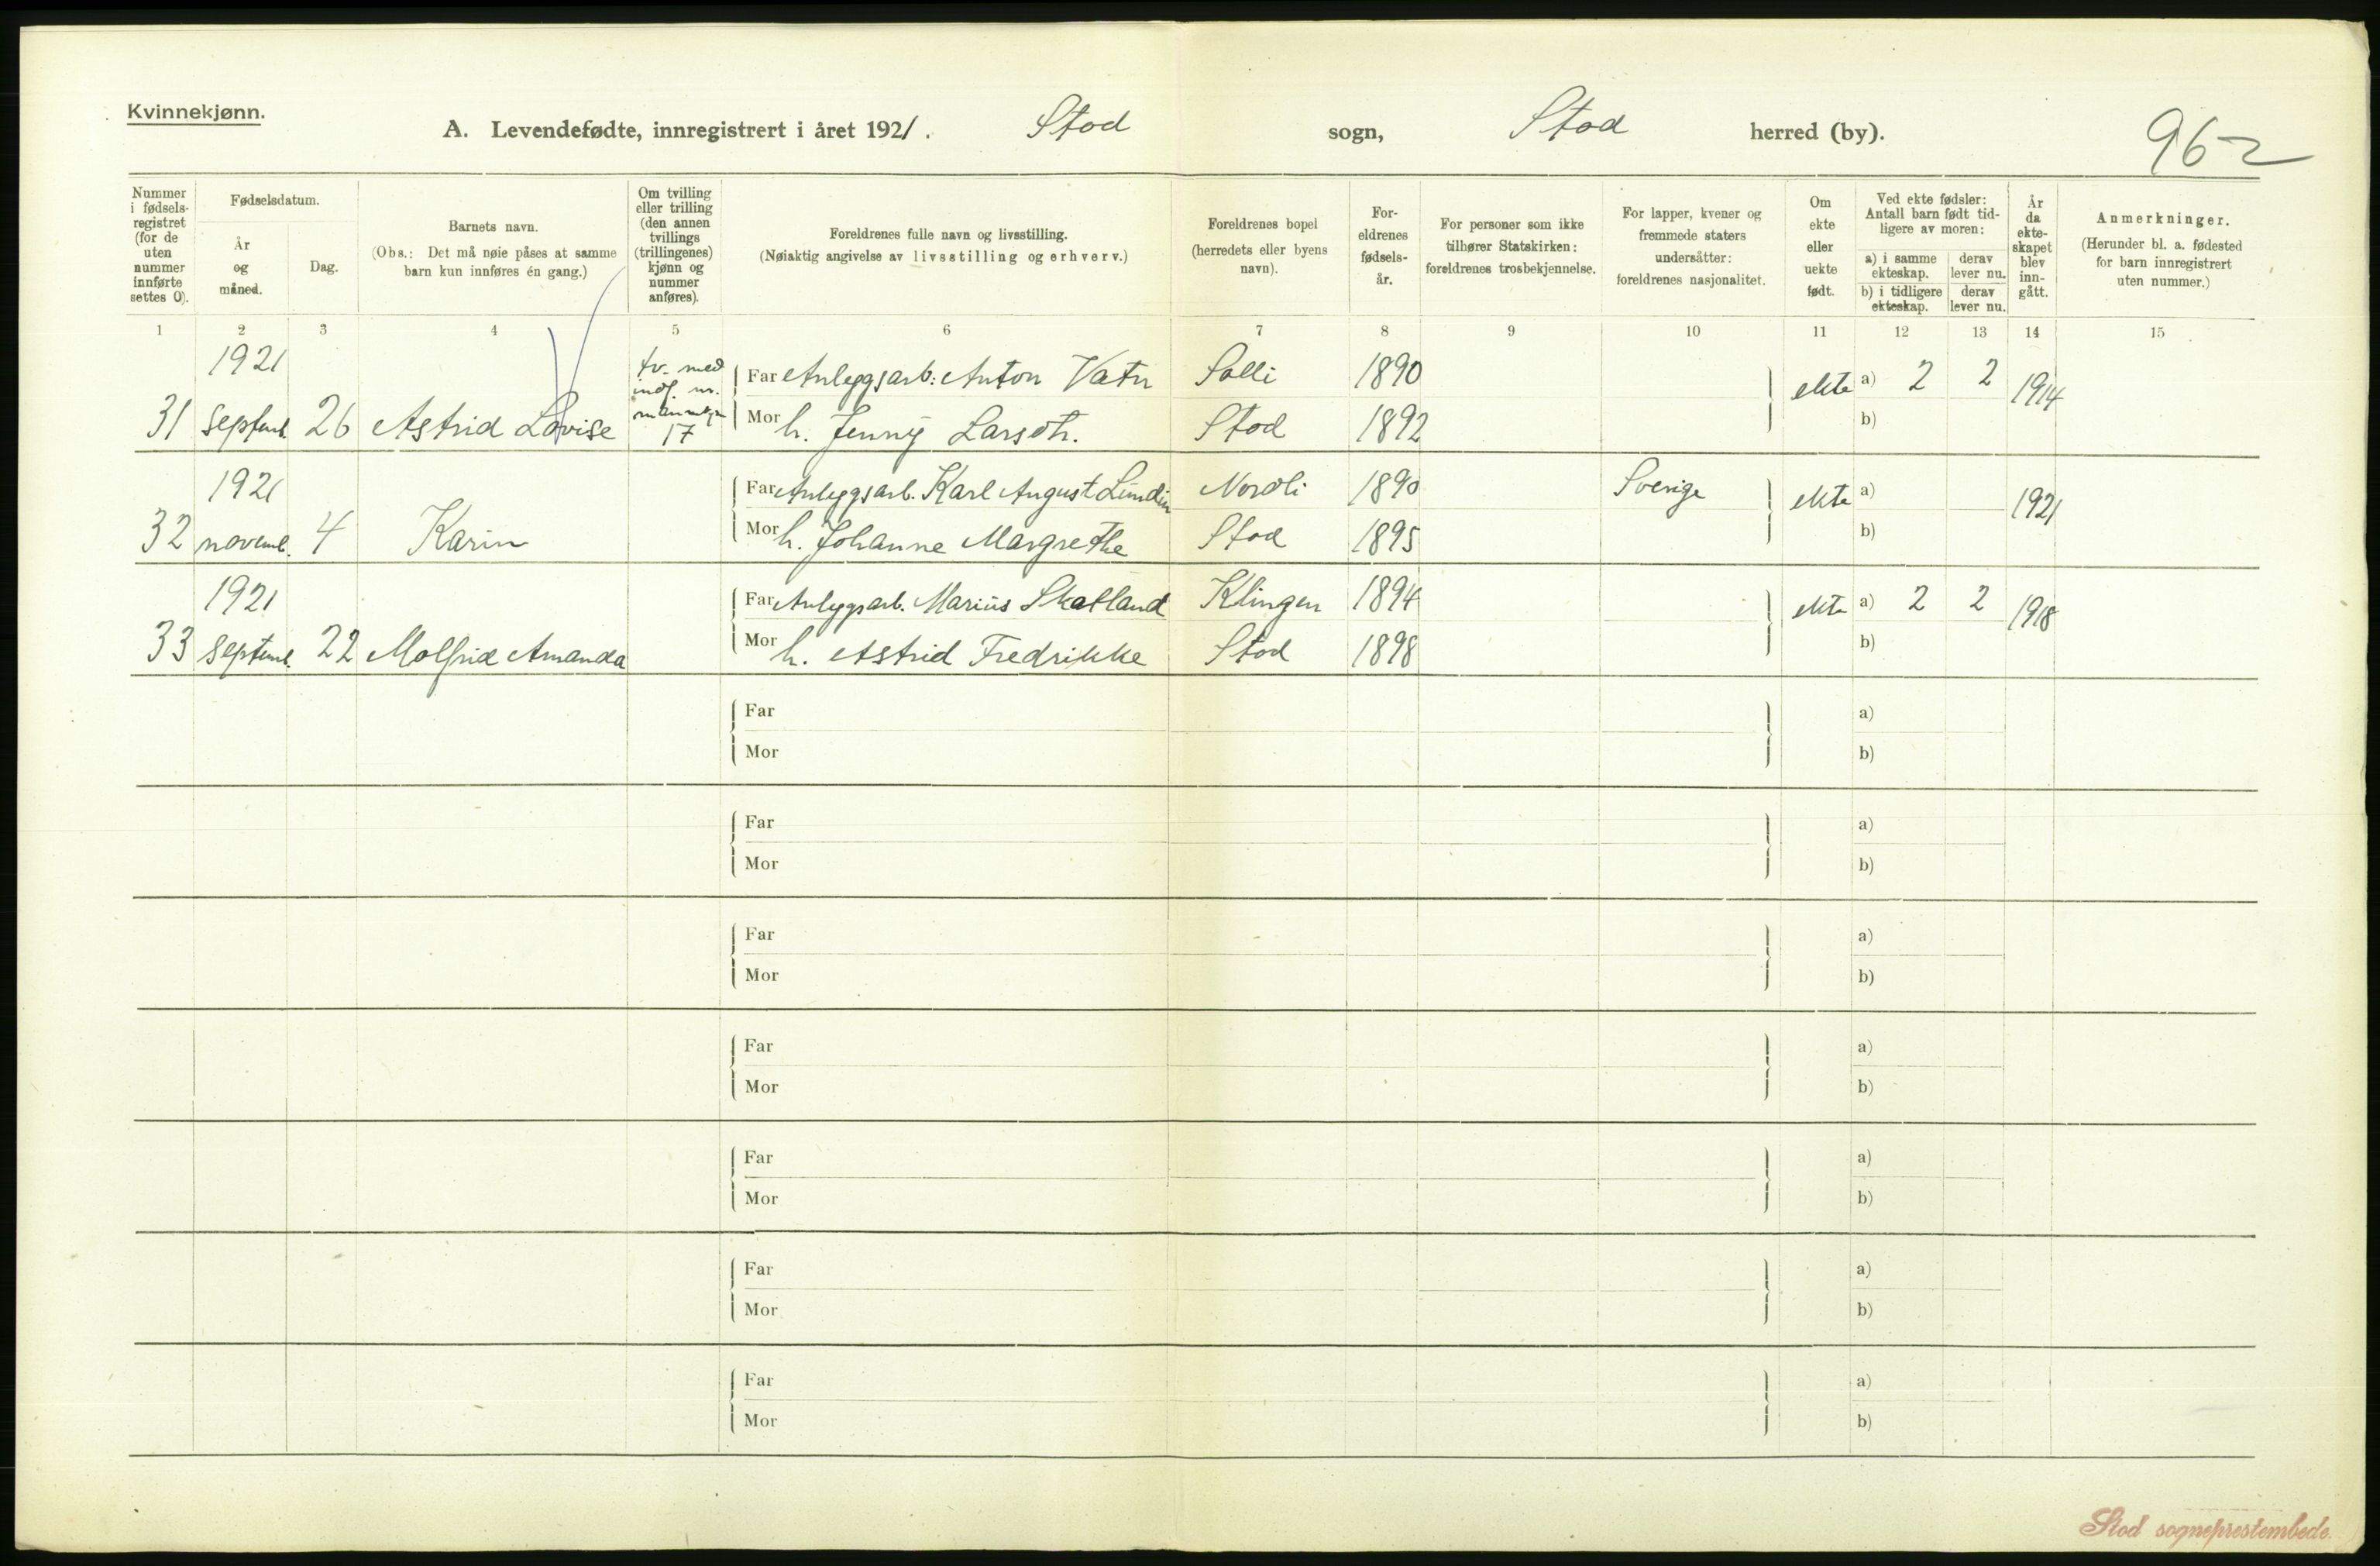 Kvinnekjønn.
A. Levendefødte, innregistrert i året 1921. Stod sogn, Stod herred (by).
962
Nummer i fødsels-registret (for de uten nummer innførte settes 0).
Fødselsdatum.
År og måned.
Dag.
Barnets navn.
(Obs.: Det må nøie påses at samme barn kun innføres én gang.)
Om tvilling eller trilling (den annen tvillings (trillingenes) kjønn og nummer anføres).
Foreldrenes fulle navn og livsstilling.
(Nøiaktig angivelse av livsstilling og erhverv.)
Foreldrenes bopel (herredets eller byens navn).
For-eldrenes fødsels-år.
For personer som ikke tilhører Statskirken: foreldrenes trosbekjennelse.
For lapper, kvener og fremmede staters undersåtter: foreldrenes nasjonalitet.
Om ekte eller uekte født.
Ved ekte fødsler: Antall barn født tid-ligere av moren:
a) i samme ekteskap.
derav lever nu.
b) i tidligere ekteskap.
derav lever nu.
År da ekte-skapet blev inn-gått.
Anmerkninger.
(Herunder bl. a. fødested for barn innregistrert uten nummer.)
1 2 3 4 5 6 7 8 9 10 11 12 13 14 15
1921 tv. med Far Anleggsarb: Anton Vatn Solli 1890 ekte a) 2 2 1914
31 Septemb. 26 Astrid Lovise 17 Mor h. Jenny Larsdtr. Stod 1892 b)
1921 Far Anleggsarb. Karl August Lundin Nordli 1890 Sverige ekte a) 1921
32 novemb. 4 Karin Mor h. Johanne Margrethe Stod 1895 b)
1921 Far Anleggsarb. Marius Skatland Klingen 1894 ekte a) 2 2 1918
33 Septemb. 22 Molfrid Amanda Mor h. Astrid Fredrikke Stod 1898 b)
Far a)
Mor b)
Far a)
Mor b)
Far a)
Mor b)
Far a)
Mor b)
Far a)
Mor b)
Far a)
Mor b)
Far a)
Mor b)
Stod sogneprestembede.